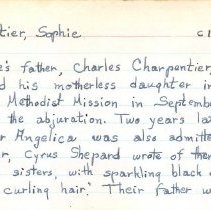 tier, Sophie c1
e's father, Charles Charpentier,
d his motherless daughter in
Methodist Mission in Septemb
the abjuration. Two years la
r Angelica was also admitte
r, Cyrus Shepard wrote of the
sisters, with sparkling black
curling hair." Their father w